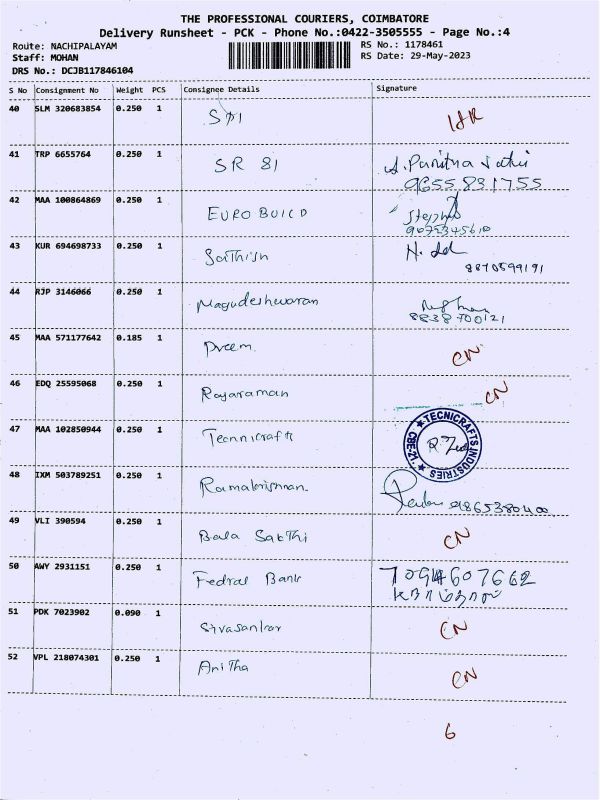 THE PROFESSIONAL COURIERS, COIMBATORE
Delivery Runsheet - PCK - Phone No.:0422-3505555 - Page No.:4
Route: NACHIPALAYAM RS No.: 1178461
Staff: MOHAN RS Date: 29-May-2023
DRS No.: DCJB117846104
S No Consignment No Weight PCS Consignee Details Signature
40 SLM 320683854 0.250 1
41 TRP 6655764 0.250 1 SR 81
9655831755
42 MAA 100864869 0.250 1 EURO BUILD
43 KUR 694698733 0.250 1 Sathish
8870599191
44 RJP 3146066 0.250 1 Magudeshwaran
8838700121
45 MAA 571177642 0.185 1 Preem CN
46 EDQ 25595068 0.250 1 Rajaraman CN
47 MAA 102850944 0.250 1 Tecnnicrafts TECNICRAFTS INDUSTRIES CBE-21
48 IXM 503789251 0.250 1 Ramakrishnan. 9865380400
49 VLI 390594 0.250 1 Bala Sakthi CN
50 AWY 2931151 0.250 1 Fedral Bank 7094607662
51 PDK 7023902 0.090 1 Sivasankar CN
52 VPL 218074301 0.250 1 Anitha CN
6